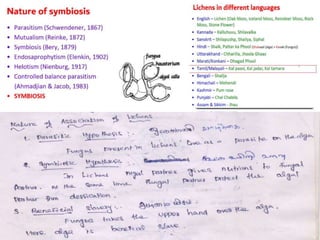 Nature of symbiosis
• Parasitism (Schwendener, 1867)
• Mutualism (Reinke, 1872)
• Symbiosis (Bery, 1879)
• Endosaprophytism (Elenkin, 1902)
• Helotism (Nienburg, 1917)
• Controlled balance parasitism
(Ahmadjian & Jacob, 1983)
• SYMBIOSIS
Lichens in different languages
• English – Lichen (Oak Moss, Iceland Moss, Reindeer Moss, Rock
Moss, Stone Flower)
• Kannada – Kalluhoovu, Shilavalka
• Sanskrit – Shilapushp, Shailya, Sighal
• Hindi – Shaik, Pattar ka Phool
• Uttarakhand – Chharila, Jhoola Ghaas
• Marati/Konkani – Dhagad Phool
• Tamil/Malayali – Kal pasni, Kal padar, Kal tamara
• Bengali – Shailja
• Himachali – Mehendi
• Kashmir – Pum rose
• Punjabi – Chai Chabila
• Assam & Sikkim -
Nature of Association of Lichens
1. Parasitic Hypothesis:-
Fungus present in lichens live as a parasite on the algae
2. Symbiotic Hypothesis
In Lichens algal partner gives nutrition to Fungal
Partner. at the same time Fungal Partner Protect the algal
Partner from
3. Beneficial slavery:
Fungus takes the upper hand over the algae.
algae is beneficial slave